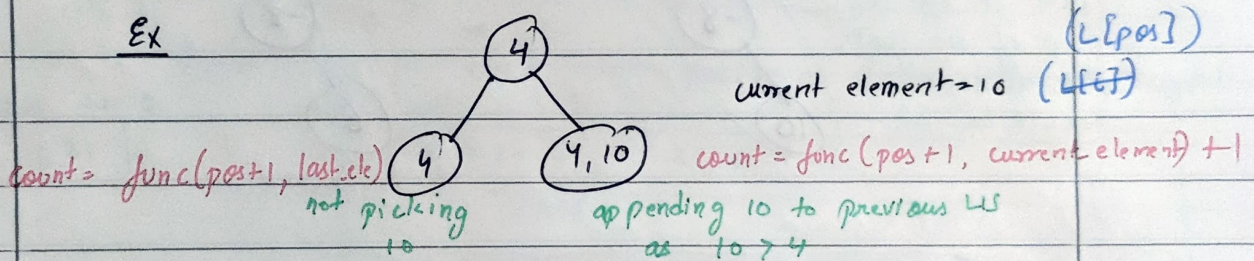 Ex
4
(L[pos])
current element = 10 (L[i])
count = func(pos+1, last_ele) 4 4, 10 count = func(pos+1, current element) +1
not picking 10
appending 10 to previous LIS
as 10 > 4